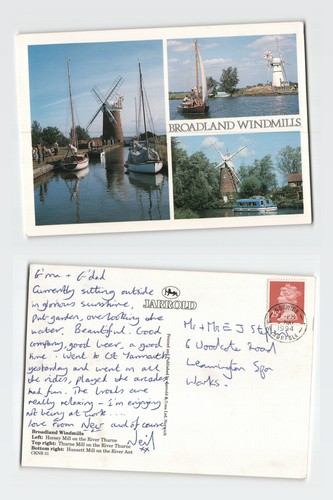 BROADLAND WINDMILLS
G'ma + G'dad
Currently sitting outside
in glorious sunshine,
pub-garden, overlooking the
water. Beautiful. Good
company, good beer, a good
time. Went to Gt Yarmouth
yesterday and went on all
the rides, played the arcades
had fun. The broads are
really relaxing - I'm enjoying
not being at work....
love from New and of course
Neil
xx
Broadland Windmills
Left: Horsey Mill on the River Thurne
Top right: Thurne Mill on the River Thurne
Bottom right: Hunsett Mill on the River Ant
CKNB 21
JARROLD
Mr + Mrs E J
6 Woodcote Road
Leamington Spa
Warks.
1994
NORFOLK